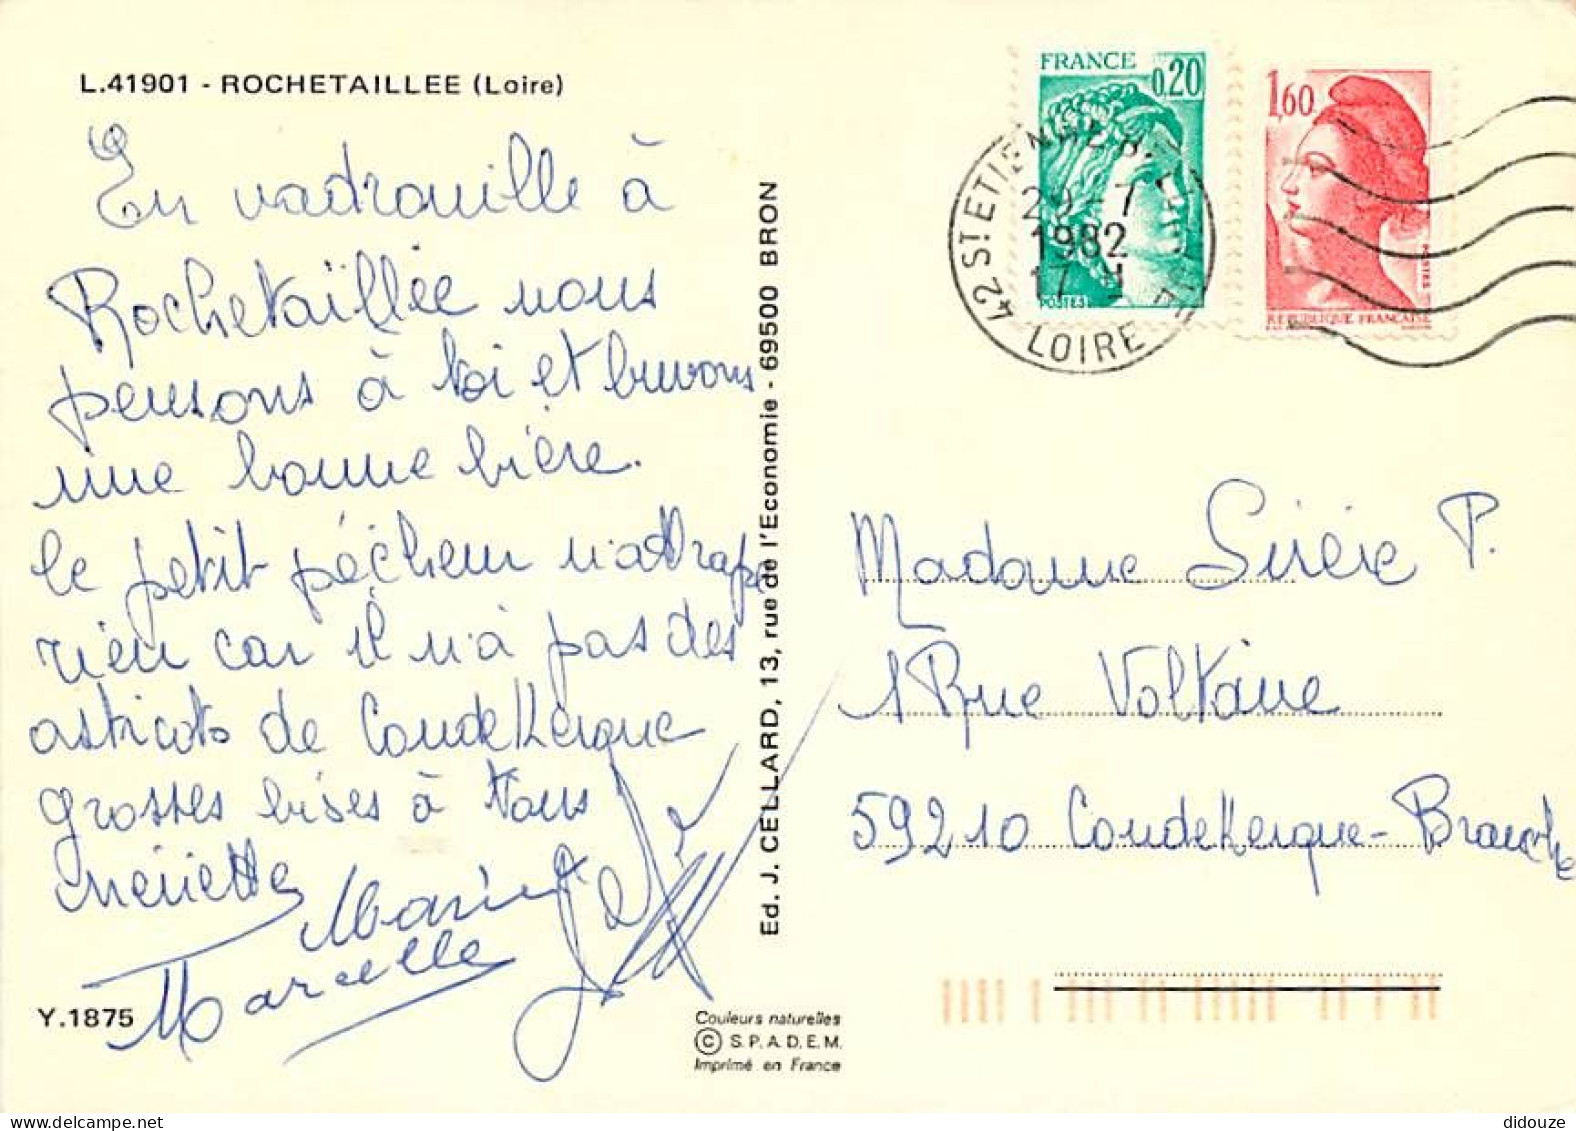 L.41901 - ROCHETAILLEE (Loire)
En vadrouille à
Rochetaillée nous
pensons à toi et buvons
une bonne bière.
le petit pécheur n'attrape
rien car il n'a pas des
asticots de Coudekerque
grosses bises à tous
Marcelle
Y.1875
Ed. J. CELLARD, 13, rue de l'Economie - 69500 BRON
Couleurs naturelles
© S.P.A.D.E.M.
Imprimé en France
FRANCE
0,20
POSTES
1,60
POSTES
REPUBLIQUE FRANÇAISE
42 ST ETIENNE
29 - 7
1982
17 H
LOIRE
Madame Sirère P.
1 Rue Voltaire
59210 Coudekerque-Branche
didouze